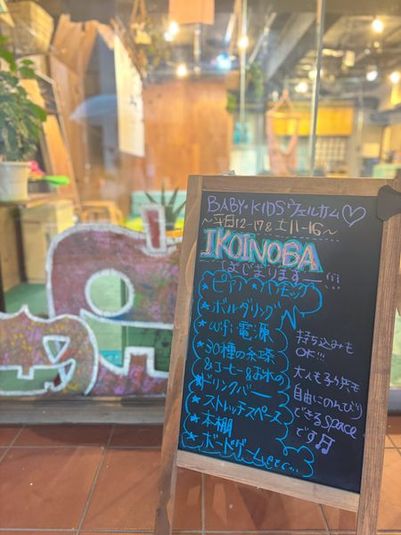 BABY・KIDS ウェルカム♡
〜平日12-17&土11-16〜
IKOINOBA
はじまります
★ボルダリング
★Wifi・電源
★30種のお茶
&コーヒー&お水の
ドリンクバー
★ストレッチスペース
★本棚
★ボードゲームetc...
持ち込みも
OK!!!
大人も子供も
自由にのんびり
できるspace
です♫